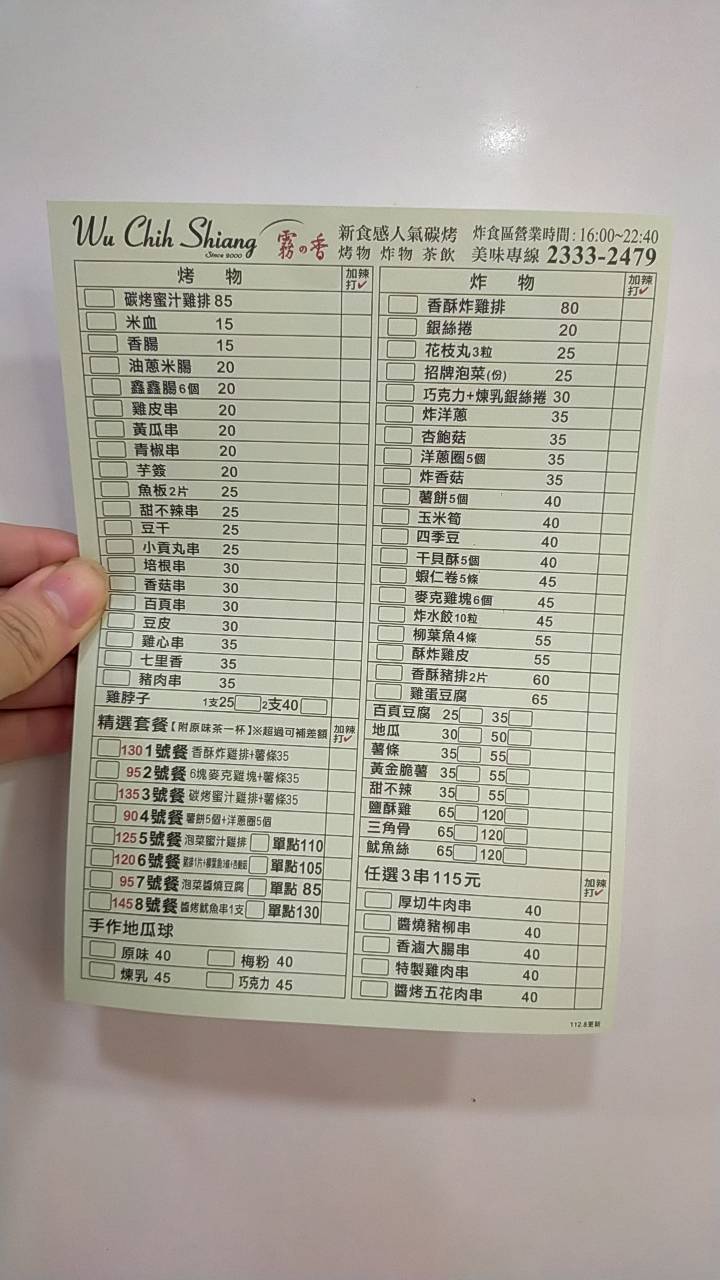 Wu Chih Shiang
Since 2000
霧の香
新食感人氣碳烤 炸食區營業時間:16:00~22:40
烤物 炸物 茶飲 美味專線 2333-2479
烤 物 加辣打✓
碳烤蜜汁雞排 85
米血 15
香腸 15
油蔥米腸 20
鑫鑫腸6個 20
雞皮串 20
黃瓜串 20
青椒串 20
芋簽 20
魚板2片 25
甜不辣串 25
豆干 25
小貢丸串 25
培根串 30
香菇串 30
百頁串 30
豆皮 30
雞心串 35
七里香 35
豬肉串 35
雞脖子 1支25 2支40
精選套餐【附原味茶一杯】※超過可補差額 加辣打✓
130 1號餐 香酥炸雞排+薯條35
95 2號餐 6塊麥克雞塊+薯條35
135 3號餐 碳烤蜜汁雞排+薯條35
90 4號餐 薯餅5個+洋蔥圈5個
125 5號餐 泡菜蜜汁雞排 單點110
120 6號餐 單點105
95 7號餐 泡菜醬燒豆腐 單點 85
145 8號餐 醬烤魷魚串1支 單點130
手作地瓜球
原味 40 梅粉 40
煉乳 45 巧克力 45
炸 物 加辣打✓
香酥炸雞排 80
銀絲捲 20
花枝丸3粒 25
招牌泡菜(份) 25
巧克力+煉乳銀絲捲 30
炸洋蔥 35
杏鮑菇 35
洋蔥圈5個 35
炸香菇 35
薯餅5個 40
玉米筍 40
四季豆 40
干貝酥5個 40
蝦仁卷5條 45
麥克雞塊6個 45
炸水餃10粒 45
柳葉魚4條 55
酥炸雞皮 55
香酥豬排2片 60
雞蛋豆腐 65
百頁豆腐 25 35
地瓜 30 50
薯條 35 55
黃金脆薯 35 55
甜不辣 35 55
鹽酥雞 65 120
三角骨 65 120
魷魚絲 65 120
任選3串115元 加辣打✓
厚切牛肉串 40
醬燒豬柳串 40
香滷大腸串 40
特製雞肉串 40
醬烤五花肉串 40
112.8更新